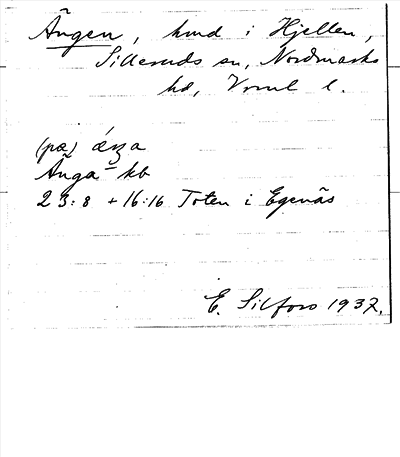 Ängen, hmd i Hjellen,
Silleruds sn, Nordmarks
hd, Vrml l.
(pæ)
Änga - kb
23:8 + 16:16 Toten i Egenäs
E. Silfors 1937.